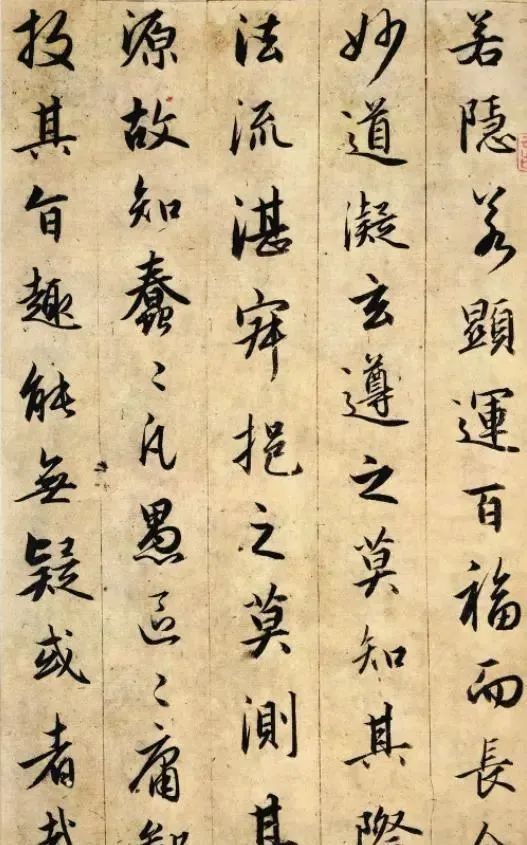 若隱若顯運百福而長
妙道凝玄遵之莫知其際
法流湛寂挹之莫測其
源故知蠢〻凡愚區〻庸
投其旨趣能無疑或者